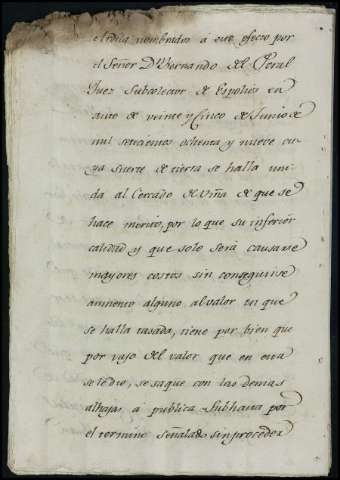 nombrados a este efecto por
el Señor Dn Bernando del Peral
Juez Subcolector de Espolios en
auto de veinte y Cinco de Junio de
mil setecientos ochenta y nueve cu
ya Suerte de tierra se halla uni
da al Cercado de Viña de que se
hace merito, por lo que su inferior
calidad y que solo será causarse
mayores costos sin conseguirse
aumento alguno al valor en que
se halla tasada, tiene por bien que
por vajo del valor que en esta
se le dio, se saque con las demas
alhajas á publica Subhasta por
el termino señalado sin proceder